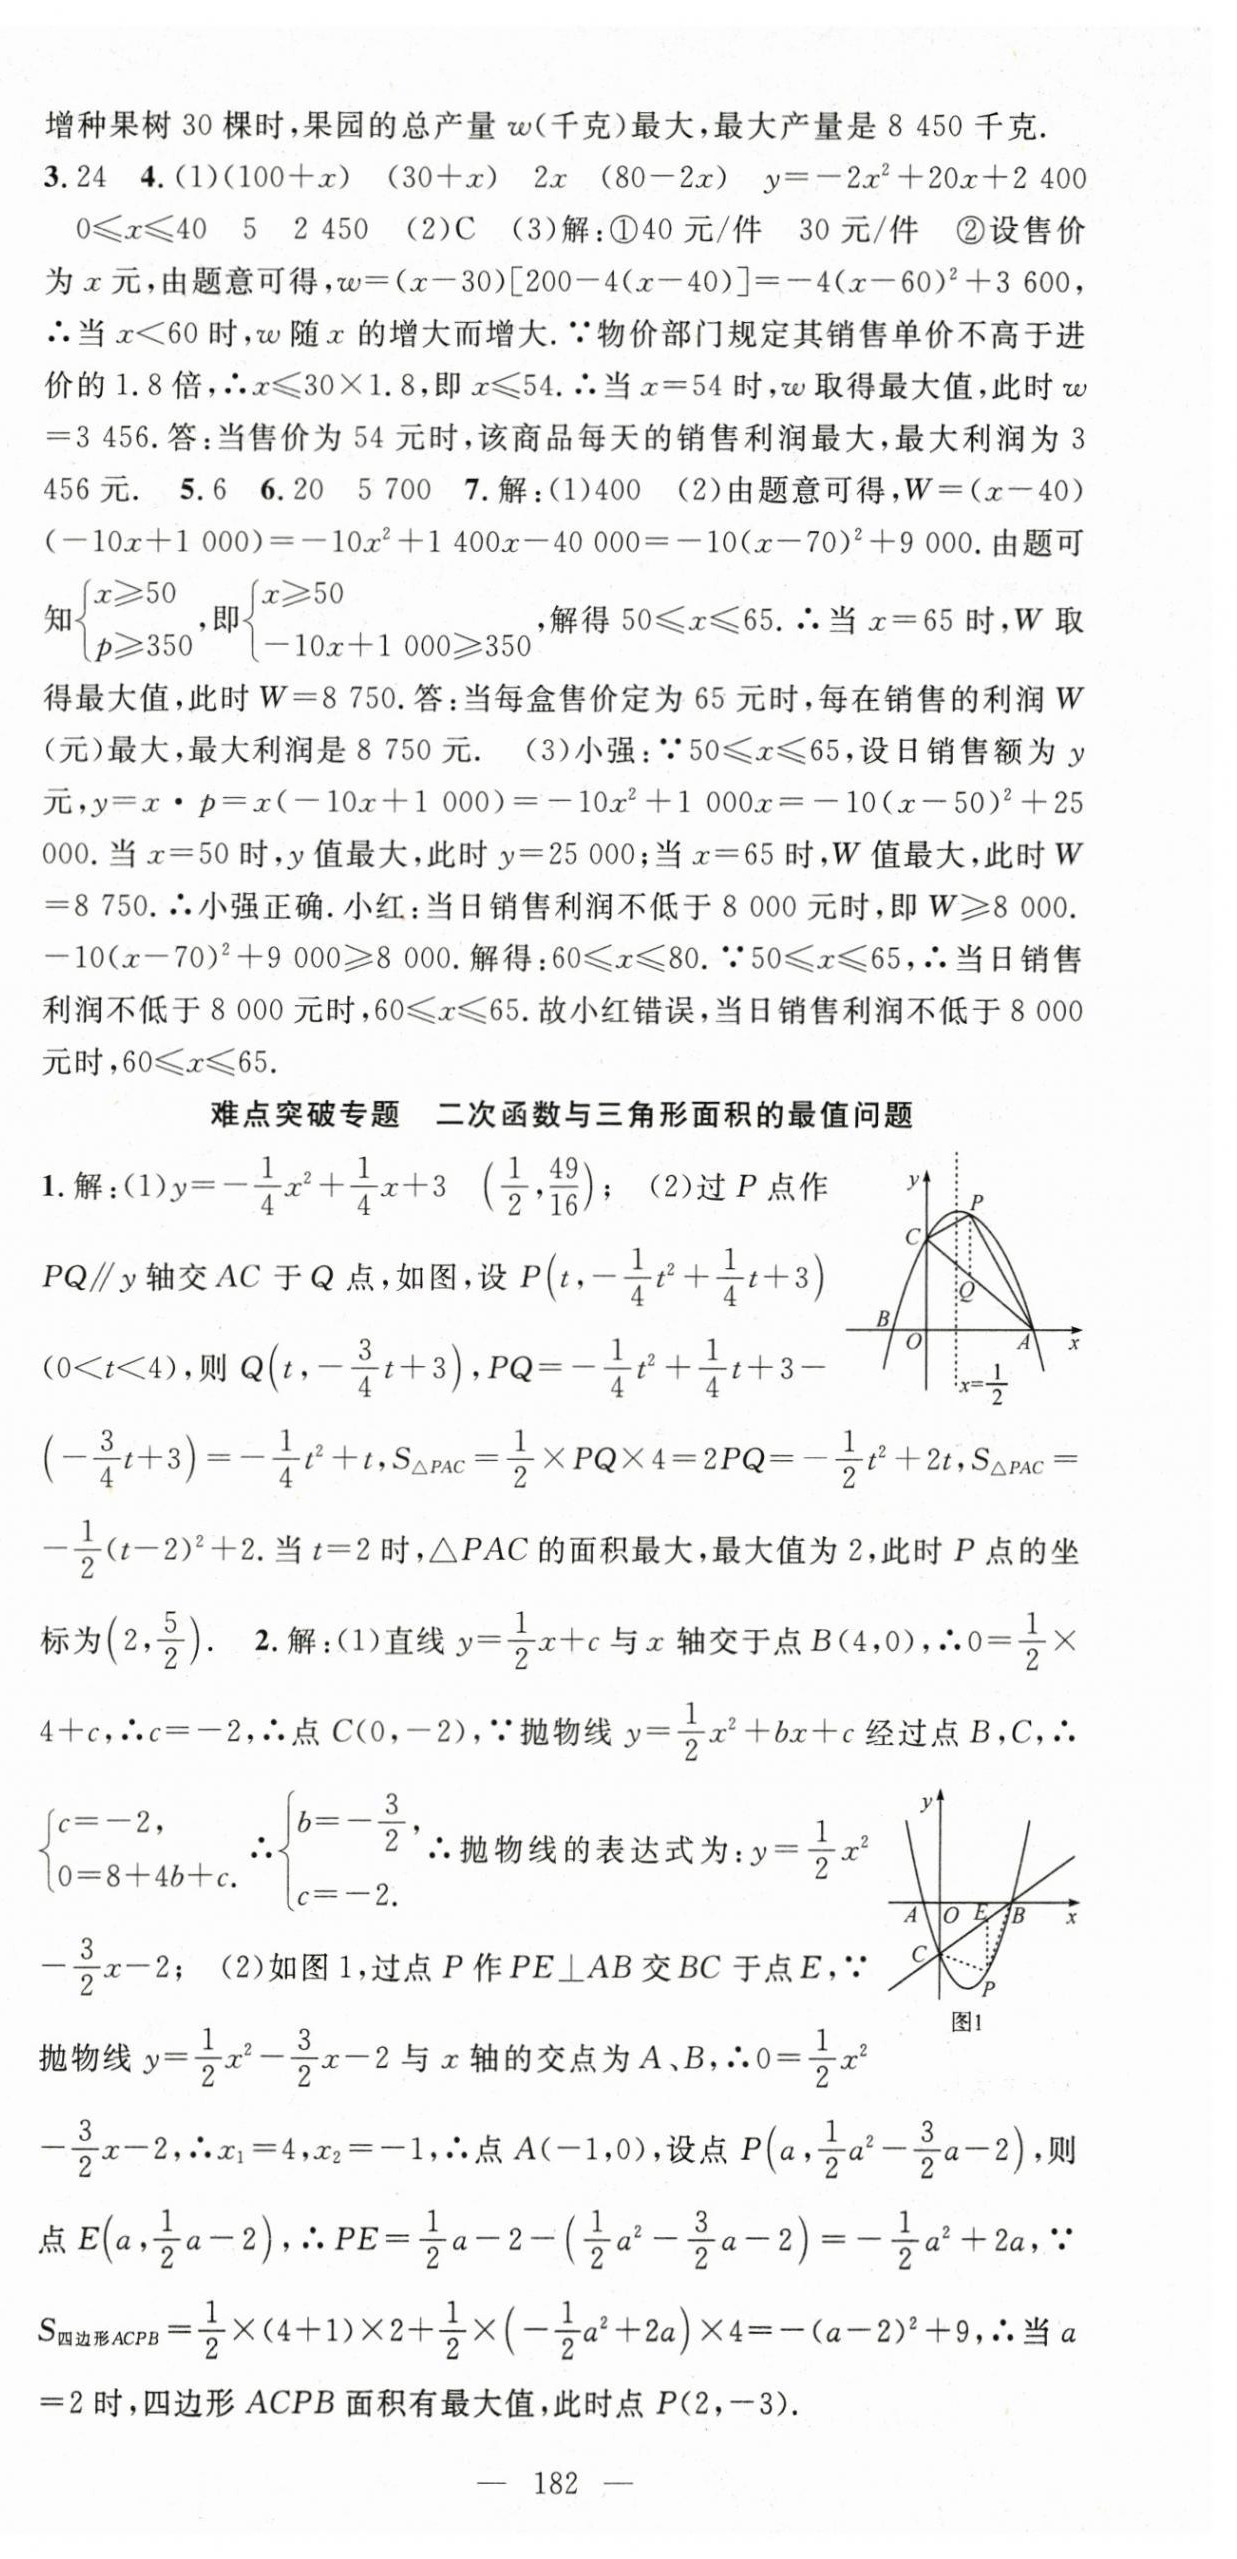 增种果树 30 棵时,果园的总产量 w(千克)最大,最大产量是 8 450 千克.
3. 24 4. (1)(100+x) (30+x) 2x (80-2x) y=-2x²+20x+2 400
0≤x≤40 5 2 450 (2)C (3)解:①40 元/件 30 元/件 ②设售价
为 x 元,由题意可得,w=(x-30)[200-4(x-40)]=-4(x-60)²+3 600,
∴当 x<60 时,w 随 x 的增大而增大.∵物价部门规定其销售单价不高于进
价的 1.8 倍,∴x≤30×1.8,即 x≤54.∴当 x=54 时,w 取得最大值,此时 w
=3 456.答:当售价为 54 元时,该商品每天的销售利润最大,最大利润为 3
456 元. 5. 6 6. 20 5 700 7. 解:(1)400 (2)由题意可得,W=(x-40)
(-10x+1 000)=-10x²+1 400x-40 000=-10(x-70)²+9 000.由题可
知{x≥50 p≥350,即{x≥50 -10x+1 000≥350,解得 50≤x≤65.∴当 x=65 时,W 取
得最大值,此时 W=8 750.答:当每盒售价定为 65 元时,每在销售的利润 W
(元)最大,最大利润是 8 750 元. (3)小强:∵50≤x≤65,设日销售额为 y
元,y=x·p=x(-10x+1 000)=-10x²+1 000x=-10(x-50)²+25
000.当 x=50 时,y 值最大,此时 y=25 000;当 x=65 时,W 值最大,此时 W
=8 750.∴小强正确.小红:当日销售利润不低于 8 000 元时,即 W≥8 000.
-10(x-70)²+9 000≥8 000.解得:60≤x≤80.∵50≤x≤65,∴当日销售
利润不低于 8 000 元时,60≤x≤65.故小红错误,当日销售利润不低于 8 000
元时,60≤x≤65.
难点突破专题 二次函数与三角形面积的最值问题
1. 解:(1)y=-1/4x²+1/4x+3 (1/2,49/16); (2)过 P 点作
PQ∥y 轴交 AC 于 Q 点,如图,设 P(t,-1/4t²+1/4t+3)
(0<t<4),则 Q(t,-3/4t+3),PQ=-1/4t²+1/4t+3-
y P C Q B O A x x=1/2
(-3/4t+3)=-1/4t²+t,S△PAC=1/2×PQ×4=2PQ=-1/2t²+2t,S△PAC=
-1/2(t-2)²+2.当 t=2 时,△PAC 的面积最大,最大值为 2,此时 P 点的坐
标为(2,5/2). 2. 解:(1)直线 y=1/2x+c 与 x 轴交于点 B(4,0),∴0=1/2×
4+c,∴c=-2,∴点 C(0,-2),∵抛物线 y=1/2x²+bx+c 经过点 B,C,∴
{c=-2, 0=8+4b+c. ∴{b=-3/2, c=-2. ∴抛物线的表达式为:y=1/2x²
-3/2x-2; (2)如图 1,过点 P 作 PE⊥AB 交 BC 于点 E,∵
y A O E B x C P
图1
抛物线 y=1/2x²-3/2x-2 与 x 轴的交点为 A、B,∴0=1/2x²
-3/2x-2,∴x₁=4,x₂=-1,∴点 A(-1,0),设点 P(a,1/2a²-3/2a-2),则
点 E(a,1/2a-2),∴PE=1/2a-2-(1/2a²-3/2a-2)=-1/2a²+2a,∵
S四边形ACPB=1/2×(4+1)×2+1/2×(-1/2a²+2a)×4=-(a-2)²+9,∴当 a
=2 时,四边形 ACPB 面积有最大值,此时点 P(2,-3).
— 182 —